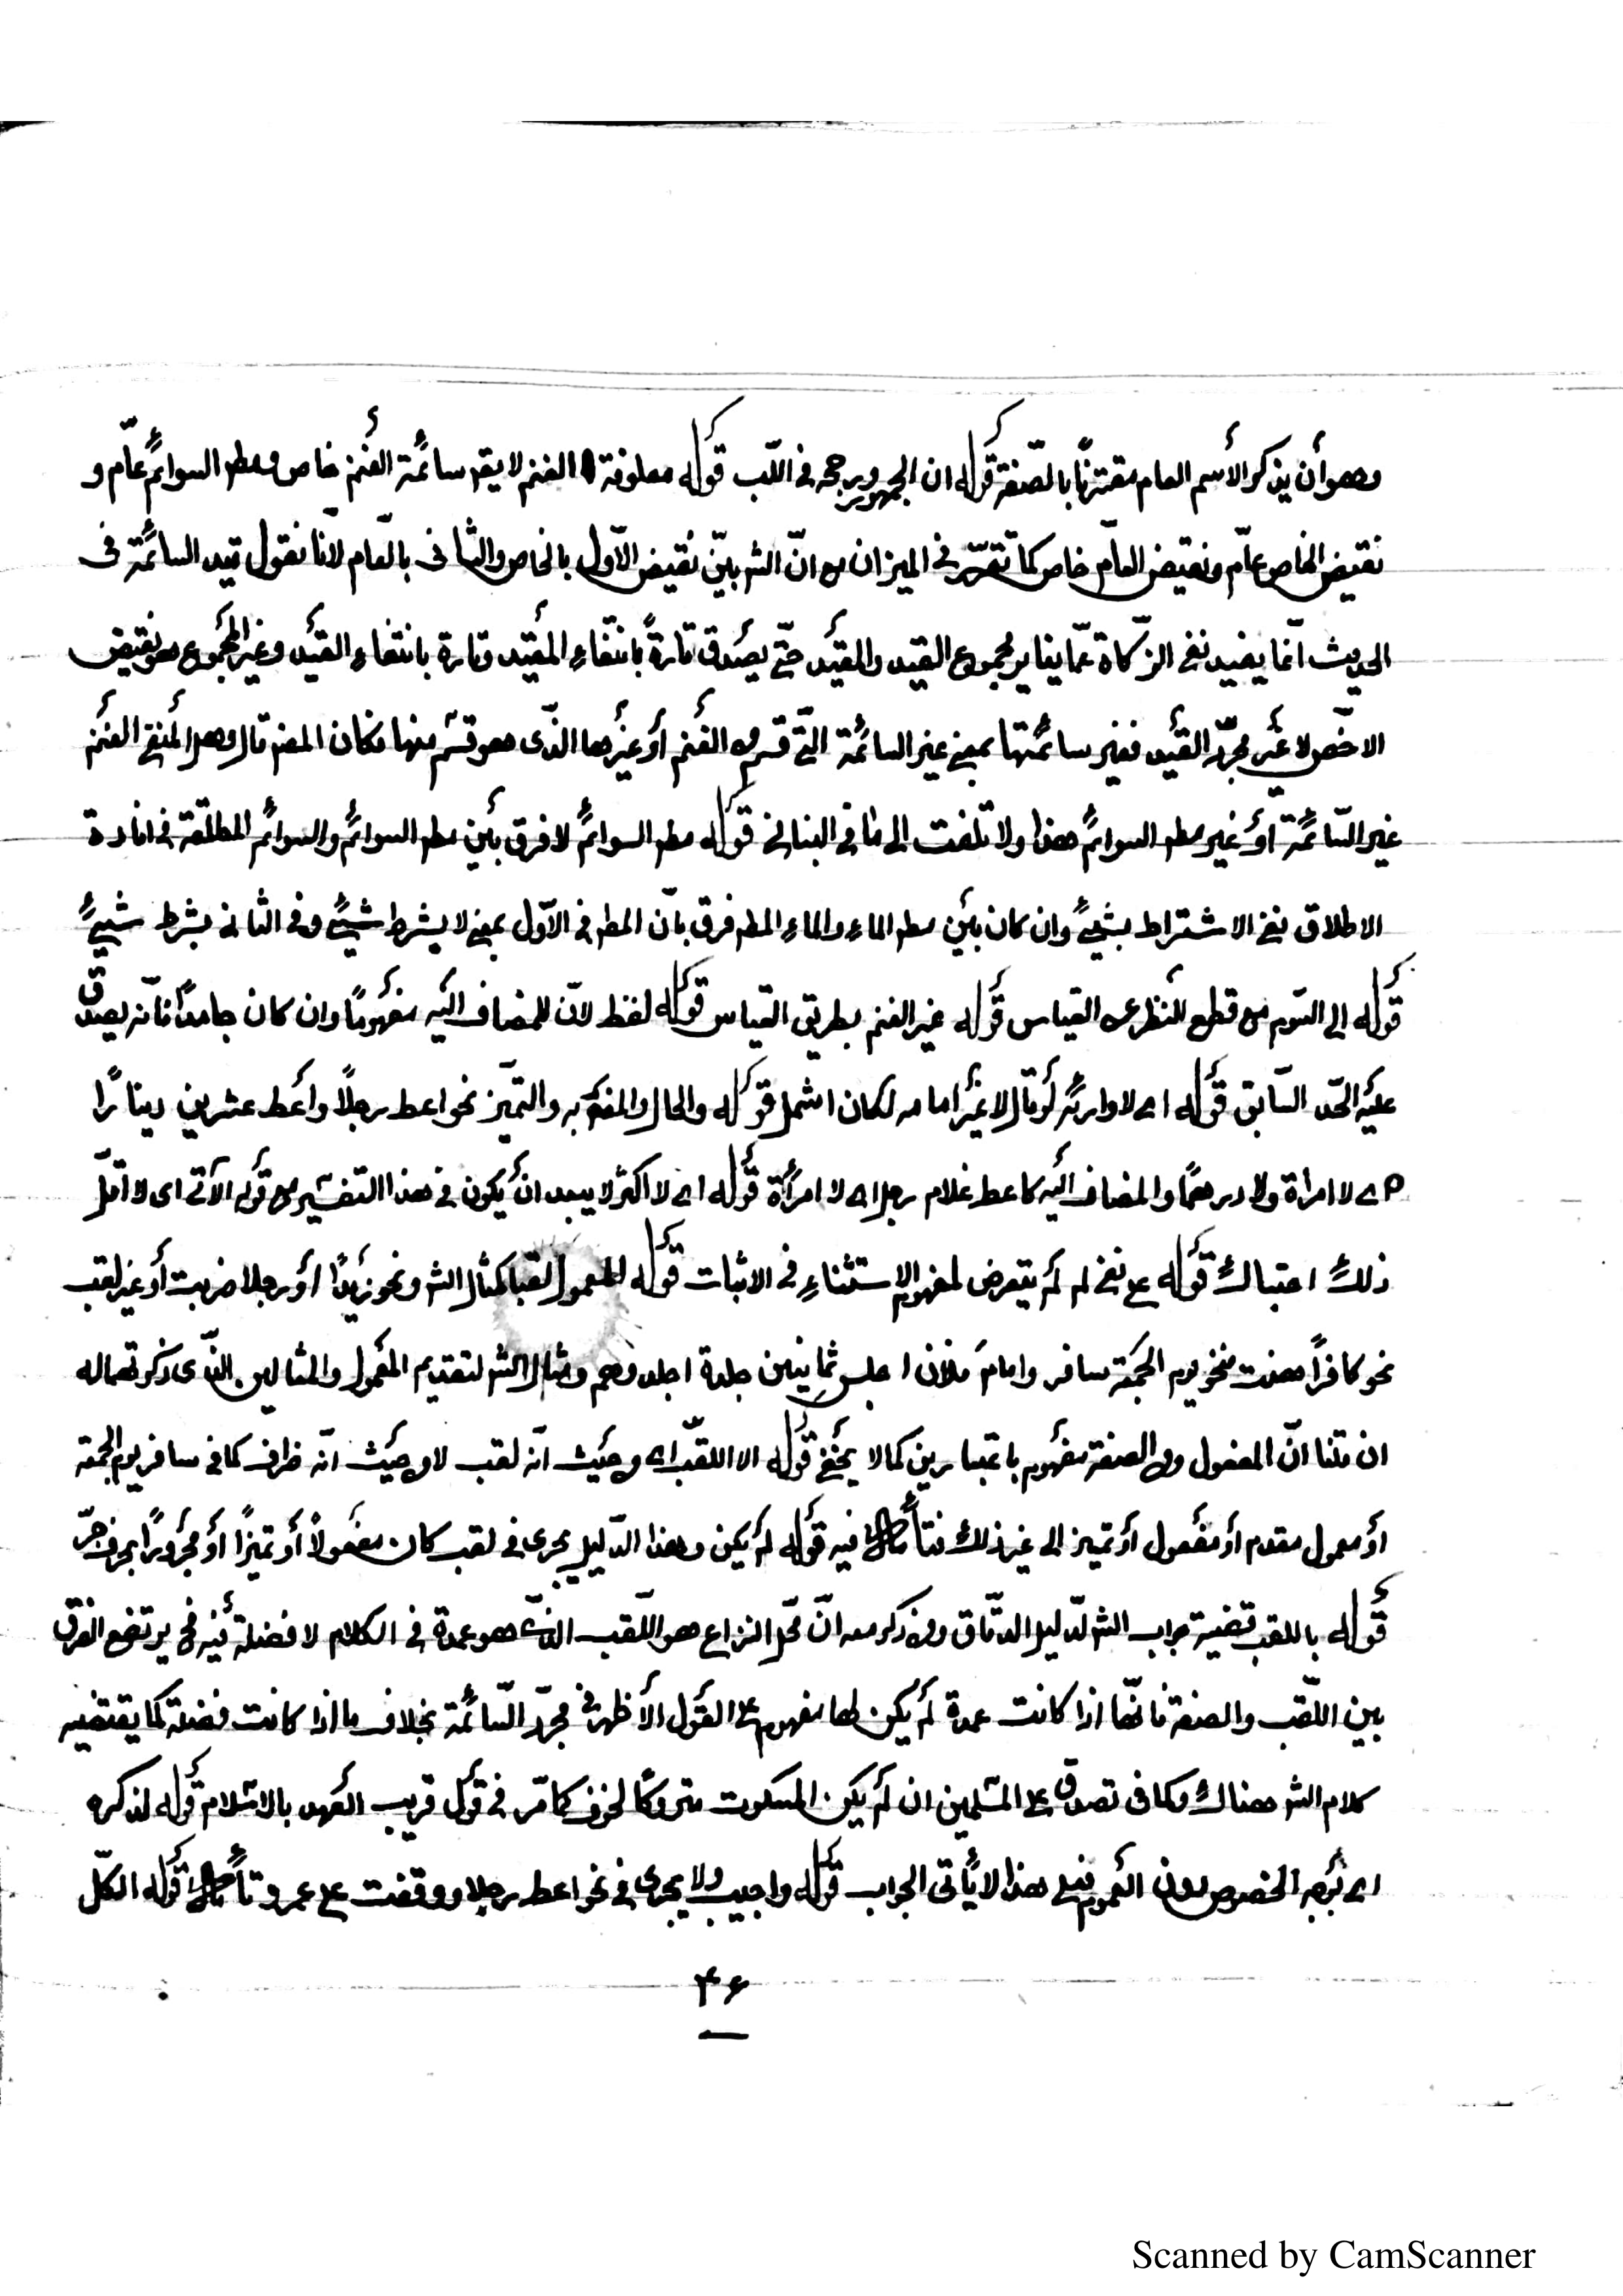 وهو أن يذكر الأسم العام مقترنًا بالصّفة قوله ان الجمهور ورجحه في اللّب قوله معلوفة الغنم لا يقر سائمة الغنم خاص ومطر السوائم عامّ و
نقيض الخاص عامّ ونقيض العامّ خاص كما تقرّر في الميزان مع انّ الشر بيّن نقيض الأوّل بالخاص والثانى بالعام لانّا نقول قيد السائمة فى
الحديث انّما يفيد نفي الزّكاة عمّا يغاير مجموع القيد والمقيّد حتّى يصدق تارةً بانتفاءِ المقيّد وتارة بانتفاءِ القيد وغير المجموع هو نقيض
الاخصّ لا غير مجرّد القيد فغير سائمتها بمعنى غير السائمة التّي قسم من الغنم أو غيرها الذّى هو قسم منها فكان المص قال وهل المنفي الغنم
غير السّائمة أو غير مطر السوائم هذا ولا تلتفت الى ما في البناني قوله مطر السوائم لا فرق بين مطر السوائم والسوائم المطلقة في افادة
الاطلاق نفي الاشتراط بشيءٍ وان كان بين مطر الماءِ والماءِ المطر فرق بأن المطر في الأوّل بمعنى لا يشرط شيءٍ وفي الثاني بشرط شيءٍ
قوله الى السّوم مع قطع النظر عن القياس قوله غير الغنم بطريق القياس قوله لفظ لانّ للمضاف اليه مفهومًا وان كان جامدًا فانّه يصدق
عليه الحّد السّابق قوله اى لا وارئه لو قال لا غير امامه لكان اشمل قوله والحال والمفعو به والتميّز نحو اعط رجلًا واعط عشرين دينارًا
اى لا امراة ولا درهمًا والمضاف اليه كاعط غلام رجل اى لا امرأة قوله اى لا اكثر لا يبعد ان يكون في هذا التفسير مع قوله الآتى اى لا اقلّ
ذلك احتباك قوله على نفي لم لم يتعرض لمفهوم الاستثناءِ في الاثبات قوله المعمول لقبا كمثال الشر ونحو زيدًا أو رجلا ضربت أو غير لقب
نحو كافرًا فنحو يوم الجمعة سافر وامامَ فلان اجلس ثمانين جلدة اجلدوهم ومثال الشر لتقديم المعمول والمثالين الذّى ذكرتهما له
ان قلنا انّ المفعول من الصفة مفهوم باعتبارين كما لا يخفى قوله الا اللقب اى من حيث انّه لقب لا من حيث انّه ظرف كما في سافر يوم الجمعة
أو معمول مقدم أو مفعول أو تميز الى غير ذلك فتأمّل فيه قوله لم يكن وهذا الدّليل يجرى في لقب كان مفعولًا أو تميزًا أو مجرورًا بحرف جرّ
قوله باللقب قضية جواب الشر لدليل الدقّاق من ذكر معه انّ محل النزاع هو اللّقب الذّى هو عمدة في الكلام لا فضلة فيه فح يرتفع الفرق
بين اللّقب والصفة فانّها اذا كانت عمدة لم يكن لها مفهوم على القول الأظهر في مجرّد السّائمة بخلاف ما اذا كانت فضلة كما يقتضيه
كلام الشر هناك وكما في تصدق على المسلمين ان لم يكن المسكوت متروكًا لخوف كما مّر في قول قريب العهد بالاسلام قوله لذكره
اى بوجه الخصوص دون العموم فعلى هذا لا يأتى الجواب قوله واجيب ولا يجرى في نحو اعط رجلا ووقفت على عمرو تأمّل قوله الكلّ
۴۶
Scanned by CamScanner